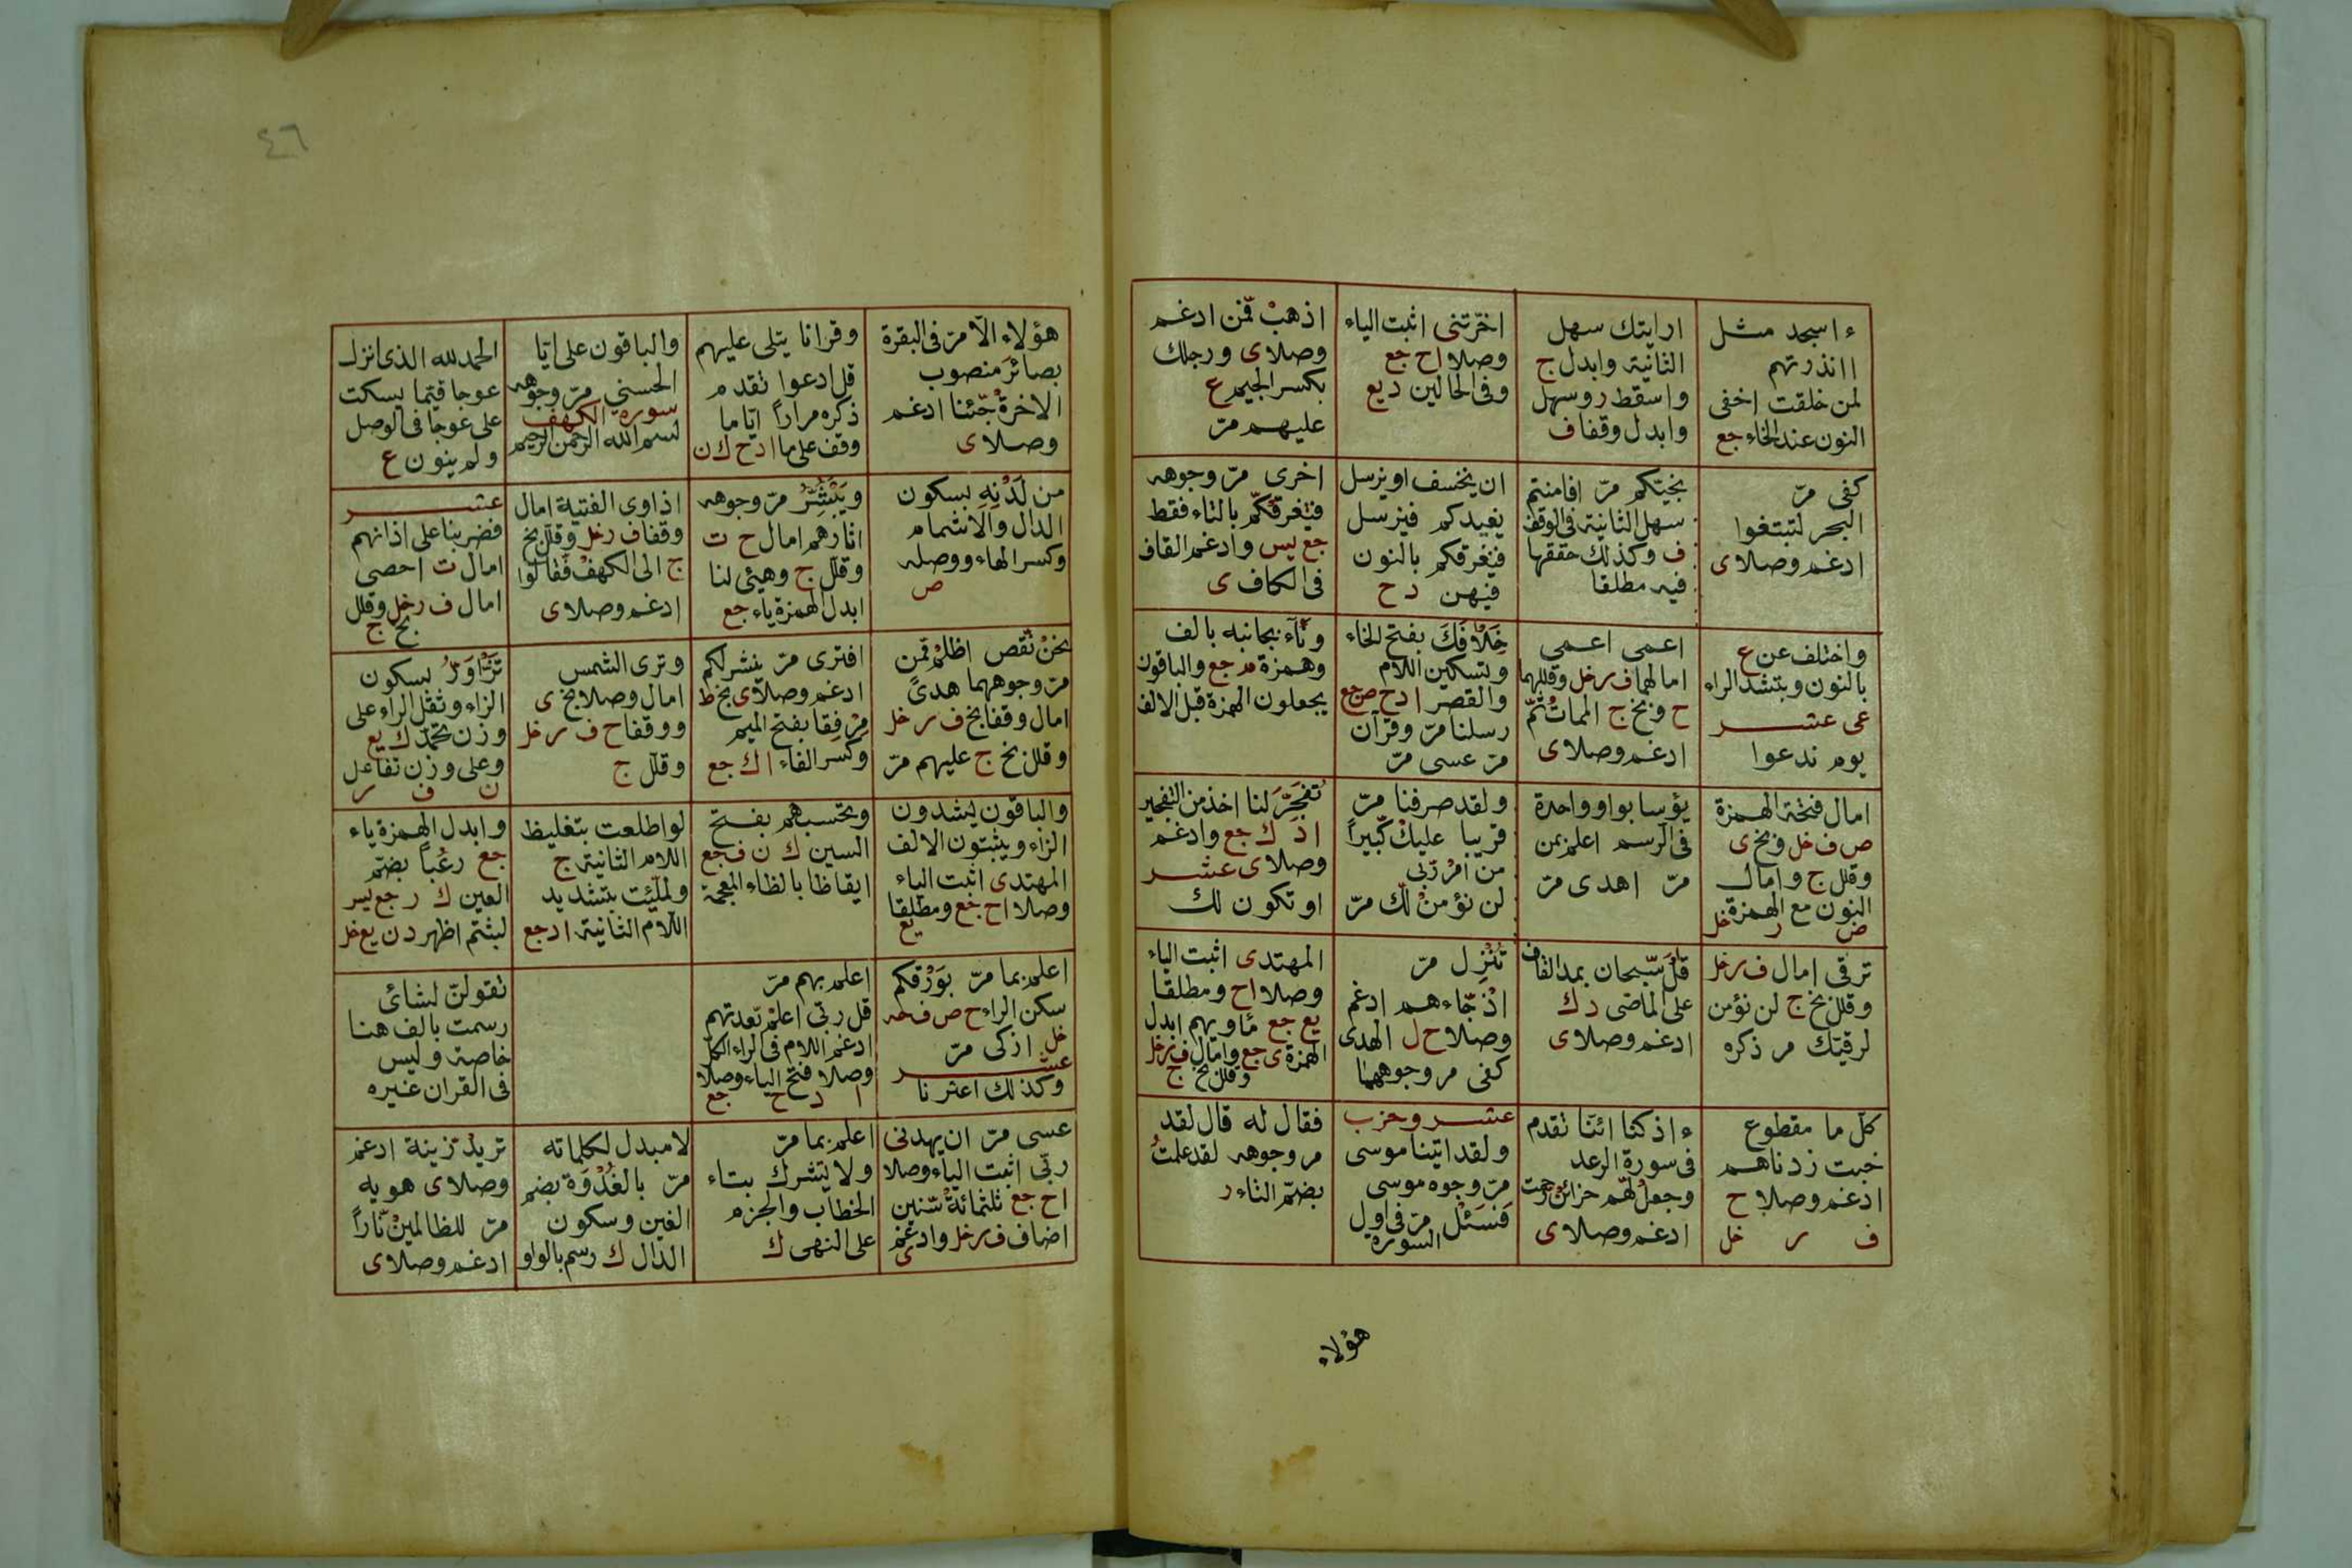 ءاسجد مثل
اانذرتهم
لمن خلقت اخفى
النون عند الخاء جع
ارايتك سهل
الثانية وابدل ج
واسقط ر وسهل
وابدل وقفا ف
اخرتنى اثبت الياء
وصلا اح جع
وفى الحالين د يع
اذهب فمن ادغم
وصلا ى ورجلك
بكسر الجيم ع
عليهم مر
كفى مر
البحر لتبتغوا
ادغم وصلا ى
بخيتكم مر افامنتم
سهل الثانية فى الوقف
ف وكذلك حققها
فيه مطلقا
ان يخسف او يرسل
يعيدكم فيرسل
فيغرقكم بالنون
فيهن د ح
اخرى مر وجوهه
فتغرقكم بالتاء فقط
جع يس وادغم القاف
فى الكاف ى
واختلف عن ع
بالنون وبتشد الراء
عى عشر
يوم ندعوا
اعمى اعمى
امالهما ف ر خل وقللهما
ح وبخ ج الممات ثم
ادغم وصلا ى
خلافك بفتح الخاء
وتسكين اللام
والقصر ا د ح ص جع
رسلنا مر وقرآن
مر عسى مر
ونآء بجانبه بالف
وهمزة م جع والباقون
يجعلون الهمزة قبل الالف
امال فتحة الهمزة
ص ف خل وبخ ى
وقلل ج وامال
النون مع الهمزة
ض ر خل
يؤسا بواو واحدة
فى الرسم اعلم بمن
مر اهدى مر
ولقد صرفنا مر
قريبا عليك كبيرا
من امر ربى
لن نؤمن لك مر
تفجر لنا اخذ من التفجير
ا د ك جع وادغم
وصلا ى عشر
او تكون لك
ترقى امال ف ر خل
وقلل بخ ج لن نؤمن
لرقيتك مر ذكره
قل سبحان بمد القاف
على الماضى د ك
ادغم وصلا ى
تنزل مر
اذ جاءهم ادغم
وصلا ح ل الهدى
كفى مر وجوههما
المهتدى اثبت الياء
وصلا اح ومطلقا
يع جع ماويهم ابدل
الهمزة ى جع وامال ف ر خل
وقلل بخ ج
كل ما مقطوع
خبت زدناهم
ادغم وصلا ح
ف ر خل
ءاذكنا ائنا تقدم
فى سورة الرعد
وجعل لهم خزائن رحمت
ادغم وصلا ى
عشر وحزب
ولقد اتينا موسى
مر وجوه موسى
فسئل مر فى اول
السورة
فقال له قال لقد
مر وجوهه لقد علمت
بضم التاء ر
هؤلاء
٤٦
هؤلاء الا مر فى البقرة
بصائر منصوب
الاخرة جئنا ادغم
وصلا ى
وقرانا يتلى عليهم
قل ادعوا تقدم
ذكره مرارا اياما
وقف على ما ا د ح ك ن
والباقون على ايا
الحسنى مر وجوهه
سورة الكهف
بسم الله الرحمن الرحيم
الحمد لله الذى انزل
عوجا قيما يسكت
على عوجا فى الوصل
ولم ينون ع
من لدنه بسكون
الدال والاشمام
وكسر الهاء ووصله
ص
ويبشر مر وجوهه
اثارهم امال ح ت
وقلل ج وهيئ لنا
ابدل الهمزة ياء جع
اذ اوى الفتية امال
وقفا ف ر خل وقلل بخ
ج الى الكهف فقالوا
ادغم وصلا ى
عشر
فضربنا على اذانهم
امال ت احصى
امال ف ر خل وقلل
بخ ج
نحن نقص اظلم ممن
مر وجوههما هدى
امال وقفا بخ ف ر خل
وقلل بخ ج عليهم مر
افترى مر ينشر لكم
ادغم وصلا ى بخ ط
مرفقا بفتح الميم
وكسر الفاء ا ك جع
وترى الشمس
امال وصلا بخ ى
ووقفا ح ف ر خل
وقلل ج
تزاور بسكون
الزاء وثقل الراء على
وزن تحمر ك يع
وعلى وزن تفاعل
ن ف ر
والباقون يشددون
الزاء ويثبتون الالف
المهتدى اثبت الياء
وصلا اح جع ومطلقا
يع
وتحسبهم بفتح
السين ك ن ف جع
ايقاظا بالظاء المعجمة
لو اطلعت بتغليظ
اللام الثانية ج
ولملئت بتشديد
اللام الثانية ا د جع
وابدل الهمزة ياء
جع رعبا بضم
العين ك ر جع يس
لبثتم اظهر د ن يع خل
اعلم بما مر بورقكم
سكن الراء ح ص ف
خل ازكى مر
عشر
وكذلك اعثرنا
اعلم بهم مر
قل ربى اعلم بعدتهم
ادغم اللام فى الراء الكل
وصلا فتح الياء وصلا
ا د ح جع
تقولن لشائ
رسمت بالف هنا
خاصة وليس
فى القران غيره
عسى مر ان يهدنى
ربى اثبت الياء وصلا
اح جع ثلثمائة سنين
اضاف ف ر خل وادغم
ى
اعلم بما مر
ولا تشرك بتاء
الخطاب والجزم
على النهى ك
لا مبدل لكلماته
مر بالغدوة بضم
الغين وسكون
الدال ك رسم بالواو
تريد زينة ادغم
وصلا ى هويه
مر للظالمين نارا
ادغم وصلا ى